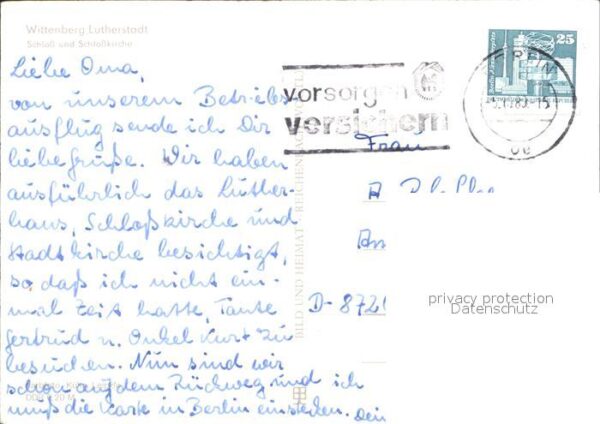 Wittenberg Lutherstadt
Schloß und Schloßkirche
Liebe Oma,
von unserem Betriebs
ausflug sende ich Dir
liebe Grüße. Wir haben
ausführlich das Luther-
haus, Schloßkirche und
Stadtkirche besichtigt,
so daß ich nicht ein-
mal Zeit hatte, Tante
Gertrud u. Onkel Kurt zu
besuchen. Nun sind wir
schon auf dem Rückweg und ich
muß die Karte in Berlin einstecken. Dein
BILD UND HEIMAT REICHENBACH
vorsorgen
versichern
BERLIN
25
Frau
D-8721
privacy protection
Datenschutz